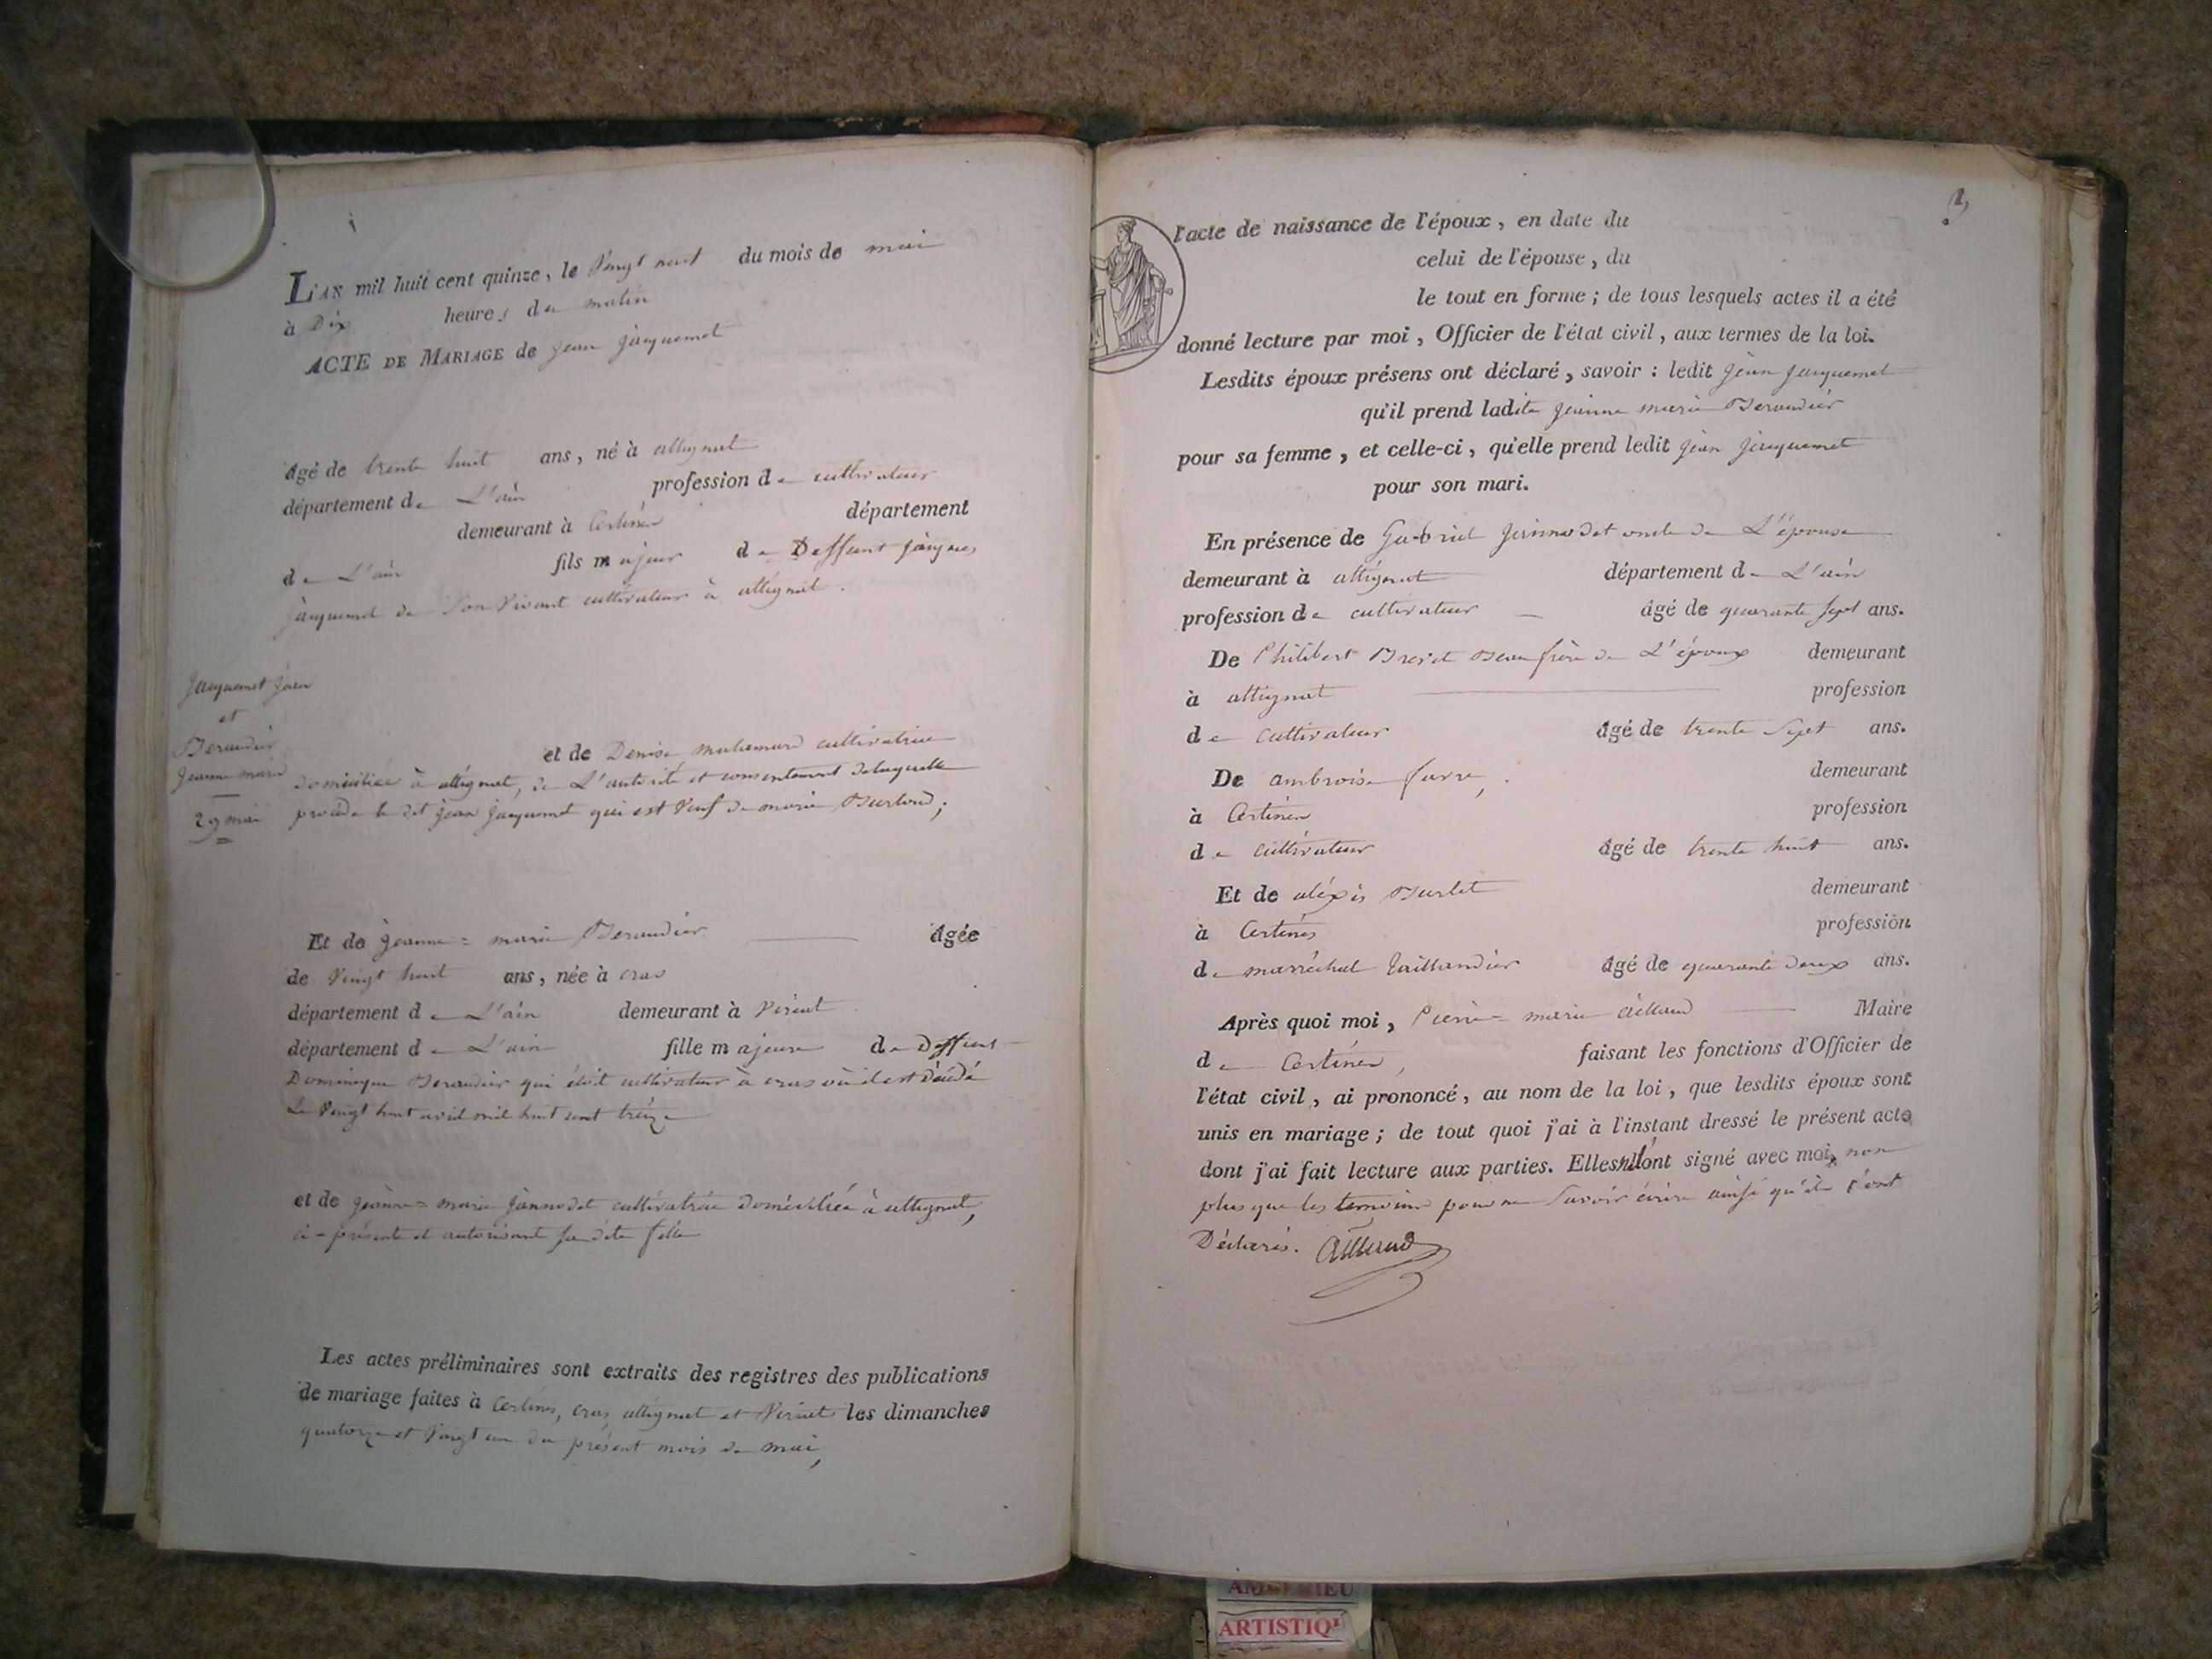 L'AN mil huit cent quinze, le Vingt neuf du mois de mai
à Dix heures du matin
ACTE DE MARIAGE de jean jacquemet
âgé de trente huit ans, né à attignat
département de L'ain profession de cultivateur
demeurant à Certines département
de L'ain fils majeur de Deffunt jacques
jacquemet de Son Vivant cultivateur à attignat.
jacquemet jean
et
Beraudier
jeanne marie
29 mai
et de Denise cultivatrice
domiciliée à attignat, de L'autorité et consentement delaquelle
procède le dit jean jacquemet qui est Veuf de marie
Et de jeanne = marie Beraudier âgée
de Vingt huit ans, née à cras
département de L'ain demeurant à Viriat
département de L'ain fille majeure de Deffunt
Dominique Beraudier qui étoit cultivateur à cras où il est décédé
Le Vingt huit avril mil huit cent treize
et de jeanne = marie jannodet cultivatrice domiciliée à attignat,
ci-présente et autorisant sa dite fille
Les actes préliminaires sont extraits des registres des publications
de mariage faites à Certines, cras, attignat et Viriat les dimanches
quatorze et Vingt un du présent mois de mai,
2
l'acte de naissance de l'époux, en date du
celui de l'épouse, du
le tout en forme ; de tous lesquels actes il a été
donné lecture par moi, Officier de l'état civil, aux termes de la loi.
Lesdits époux présens ont déclaré, savoir : ledit jean jacquemet
qu'il prend ladite jeanne marie Beraudier
pour sa femme, et celle-ci, qu'elle prend ledit jean jacquemet
pour son mari.
En présence de Gabriel jannodet oncle de L'épouse
demeurant à attignat département de L'ain
profession de cultivateur âgé de quarante sept ans.
De Philibert Beau frère de L'époux demeurant
à attignat profession
de cultivateur âgé de trente Sept ans.
De ambroise favre, demeurant
à Certines profession
de cultivateur âgé de trente huit ans.
Et de aléxis Burlet demeurant
à Certines profession
de marréchal taillandier âgé de quarante deux ans.
Après quoi moi, Pierre = marie ailland Maire
de Certines, faisant les fonctions d'Officier de
l'état civil, ai prononcé, au nom de la loi, que lesdits époux sont
unis en mariage ; de tout quoi j'ai à l'instant dressé le présent acte
dont j'ai fait lecture aux parties. Elles n'ont signé avec moi, non
plus que les temoins pour ne Savoir écrire ainsi qu'ils l'ont
Déclarés. Ailland
AMBERIEU
ARTISTIQU